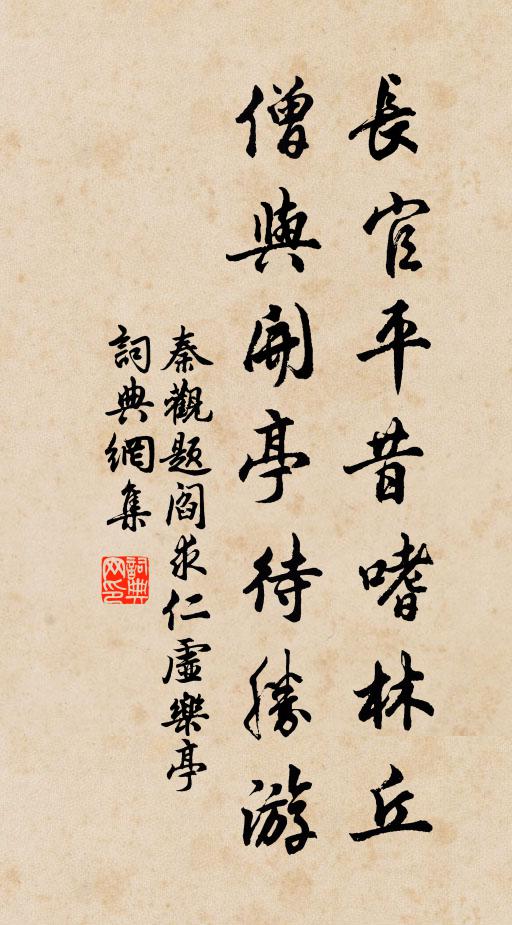 長官平昔嗜林丘
僧與開亭待勝游
秦觀題閻求仁虛樂亭
詞典網集
詞典网印